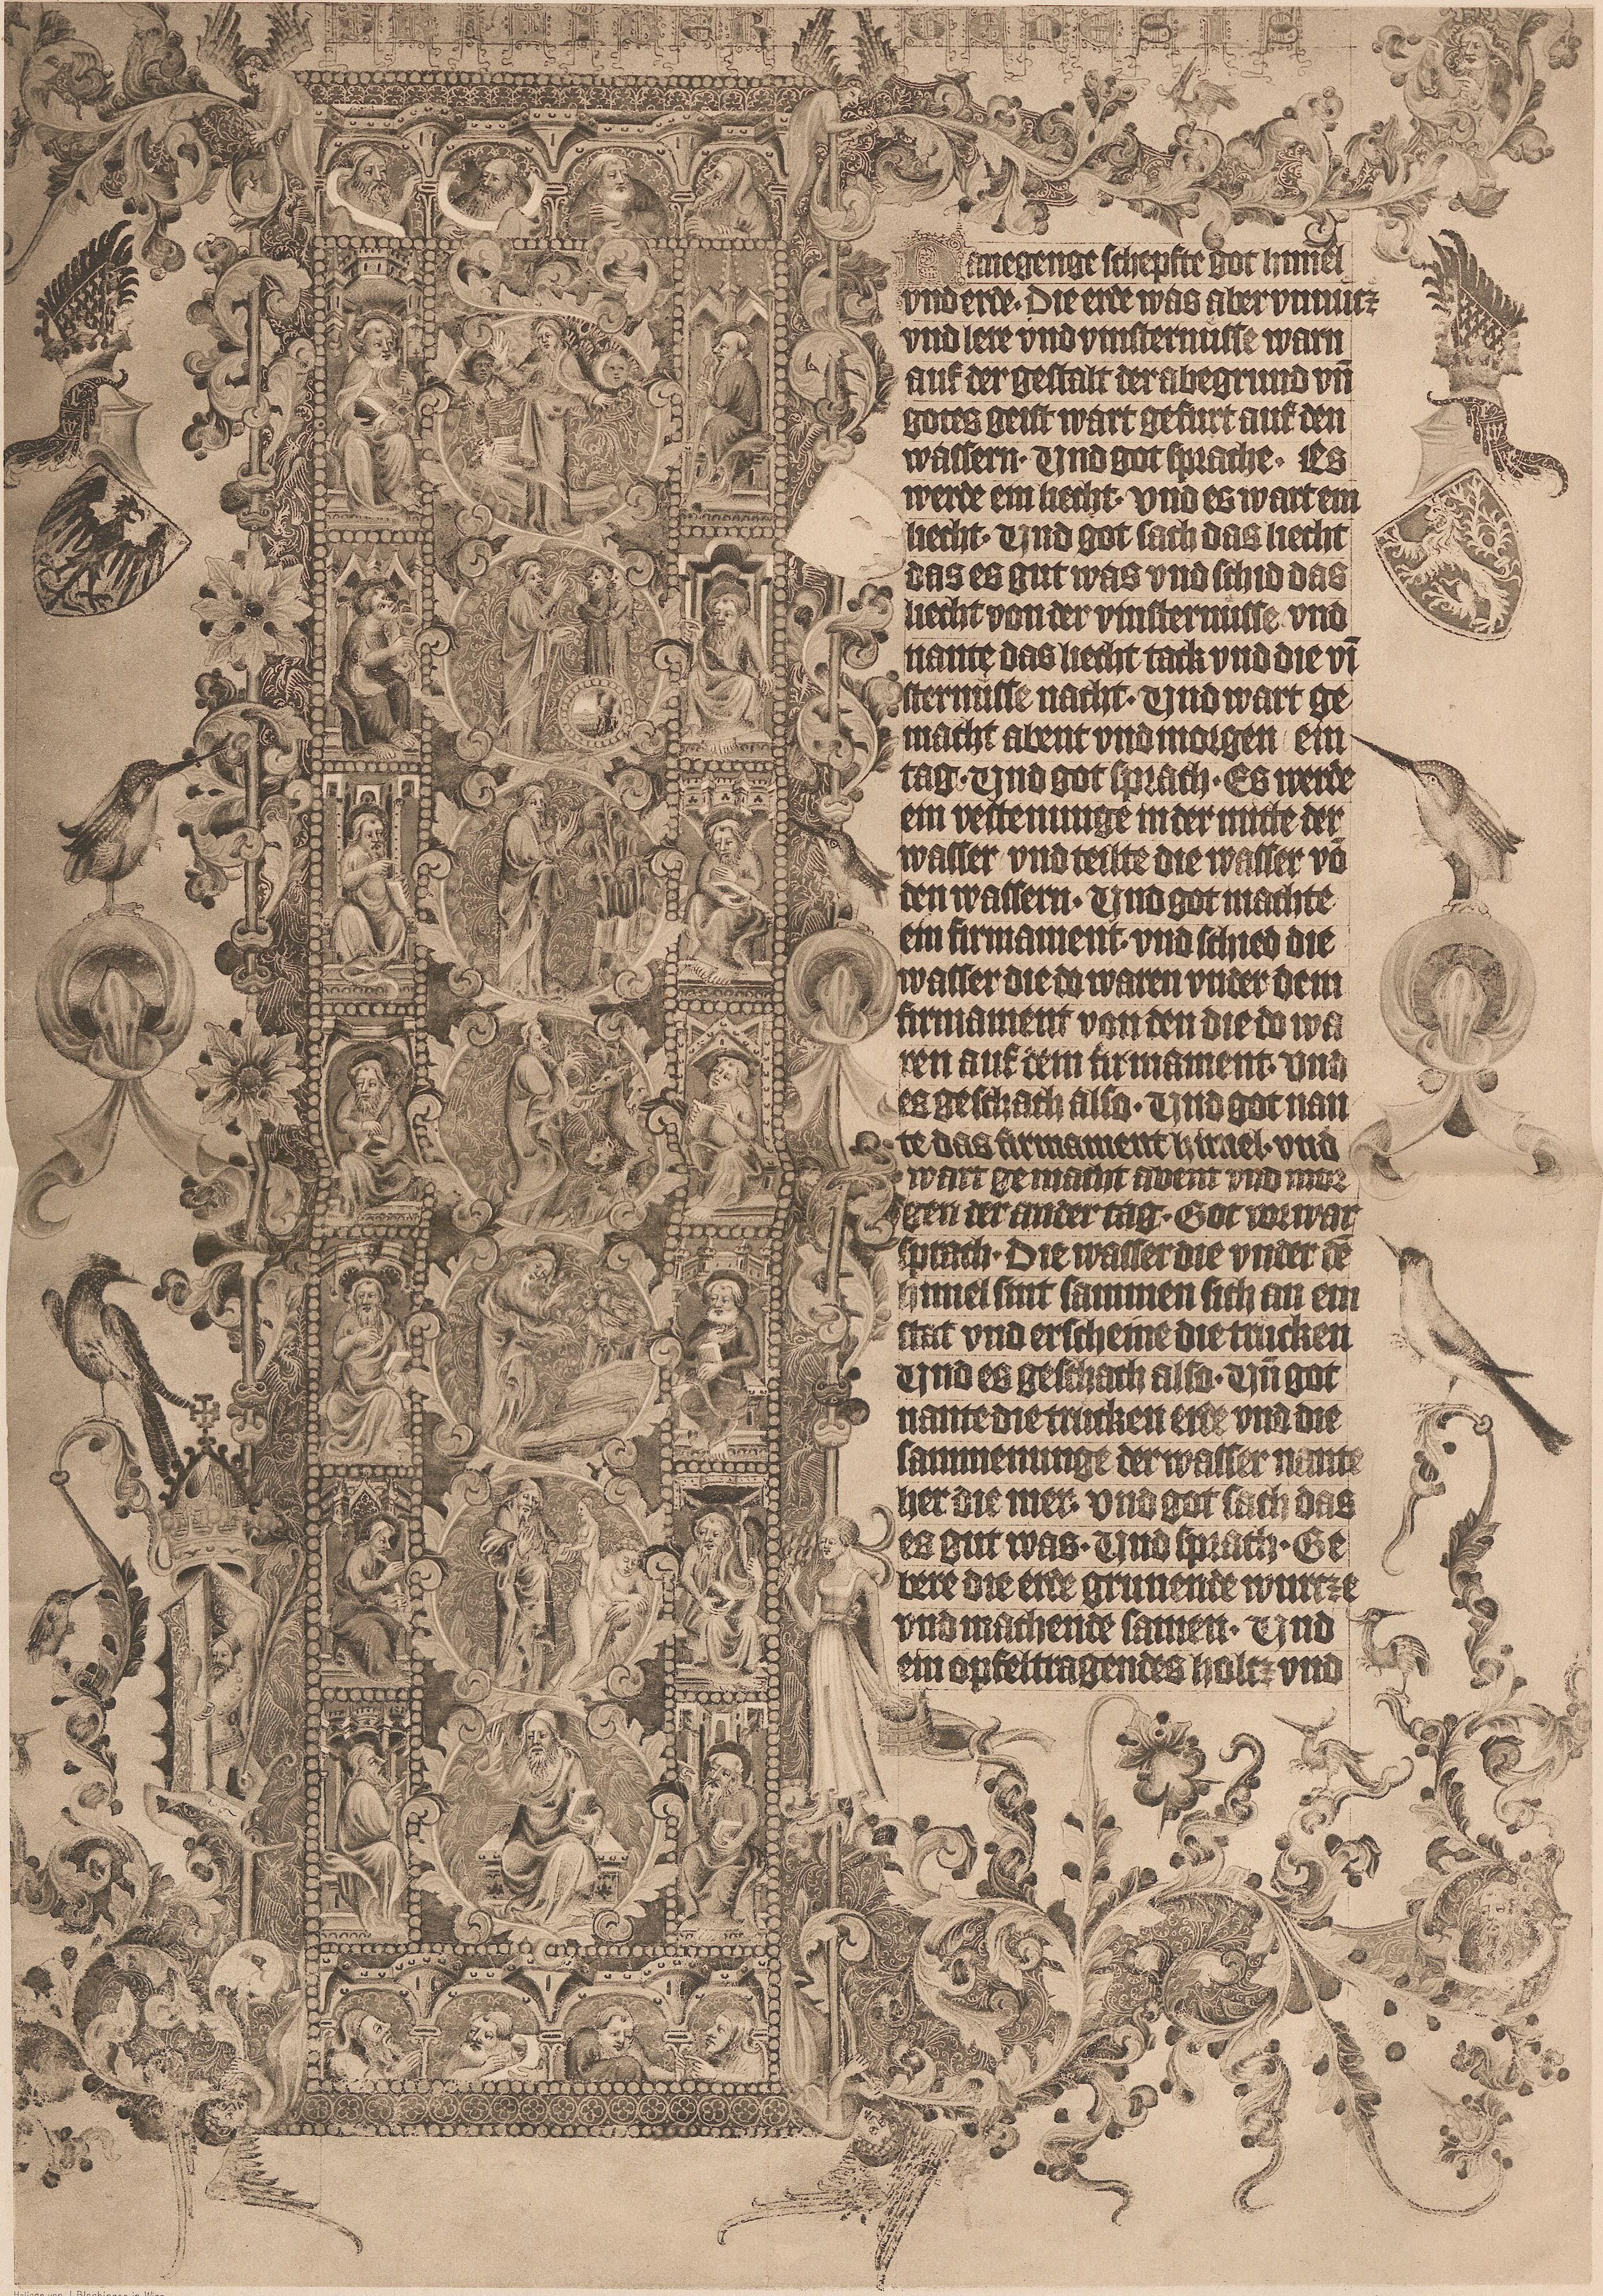 anegenge schepfte got himel
vnd erde. Die erde was aber vnnutz
vnd lere vnd vinsternusse warn
auf der gestalt der abegrund vn̄
gotes geist wart gefurt auf den
wassern. Und got sprache. Es
werde ein liecht. vnd es wart ein
liecht. Und got sach das liecht
das es gut was vnd schid das
liecht von der vinsternusse vnd
nante das liecht tack vnd die vī
sternusse nacht. Und wart ge
macht abent vnd morgen ein
tag. Und got sprach. Es werde
ein vestenunge in der mitte der
wasser vnd teilte die wasser vō
den wassern. Und got machte
ein firmament. vnd schied die
wasser die do waren vnter dem
firmament von den die do wa
ren auf dem firmament. vnd
es geschach also. Und got nan
te das firmament himel. vnd
wart gemacht abent vnd mor
gen der ander tag. Got vorwar
sprach. Die wasser die vnder dē
himel sint sammen sich an ein
stat vnd erscheine die trucken
Und es geschach also. Un̄ got
nante die trucken erde vnd die
sammenunge der wasser nante
her die mer. vnd got sach das
es gut was. Und sprach. Ge
bere die erde grunende wurtze
vnd machende samen. Und
ein opfeltragendes holtz vnd